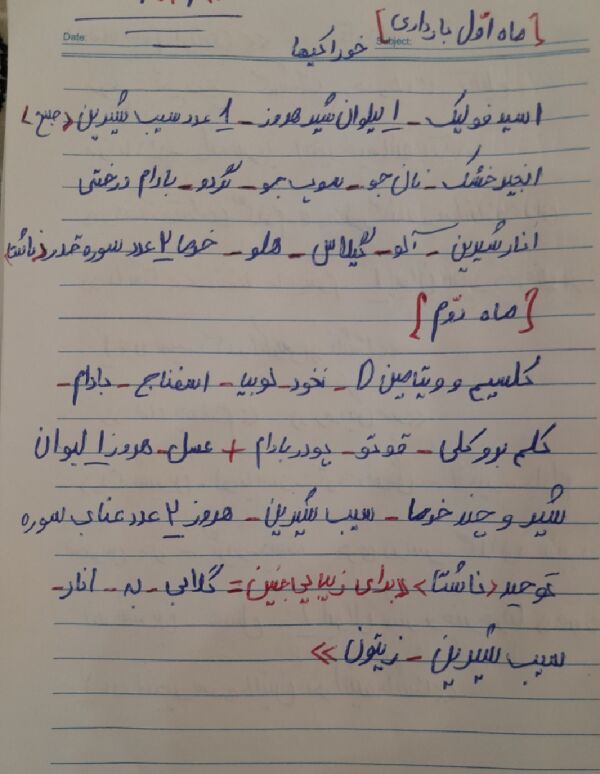 [ماه اوّل بارداری]
Date:
Subject:
خوراکیها
اسید فولیک - ۱ لیوان شیر هر روز - ۱ عدد سیب شیرین (صبح)
انجیر خشک - نان جو - سوپ جو - گردو - بادام درختی
انار شیرین - آلو - گیلاس - هلو - خرما ۲ عدد سوره قدر (ناشتا)
[ماه دوّم]
کلسیم و ویتامین D - نخود - لوبیا - اسفناج - بادام -
کلم بروکلی - قوتو - پودر بادام + عسل - هر روز ۱ لیوان
شیر و چند خرما - سیب شیرین - هر روز ۲ عدد عناب سوره
توحید (ناشتا) «برای زیبایی جنین = گلابی - به - انار -
سیب شیرین - زیتون»